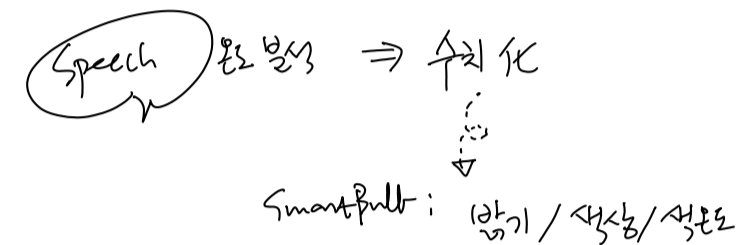 Speech 온도 분석 ⇒ 수치化
SmartBulb : 밝기 / 색상 / 색온도